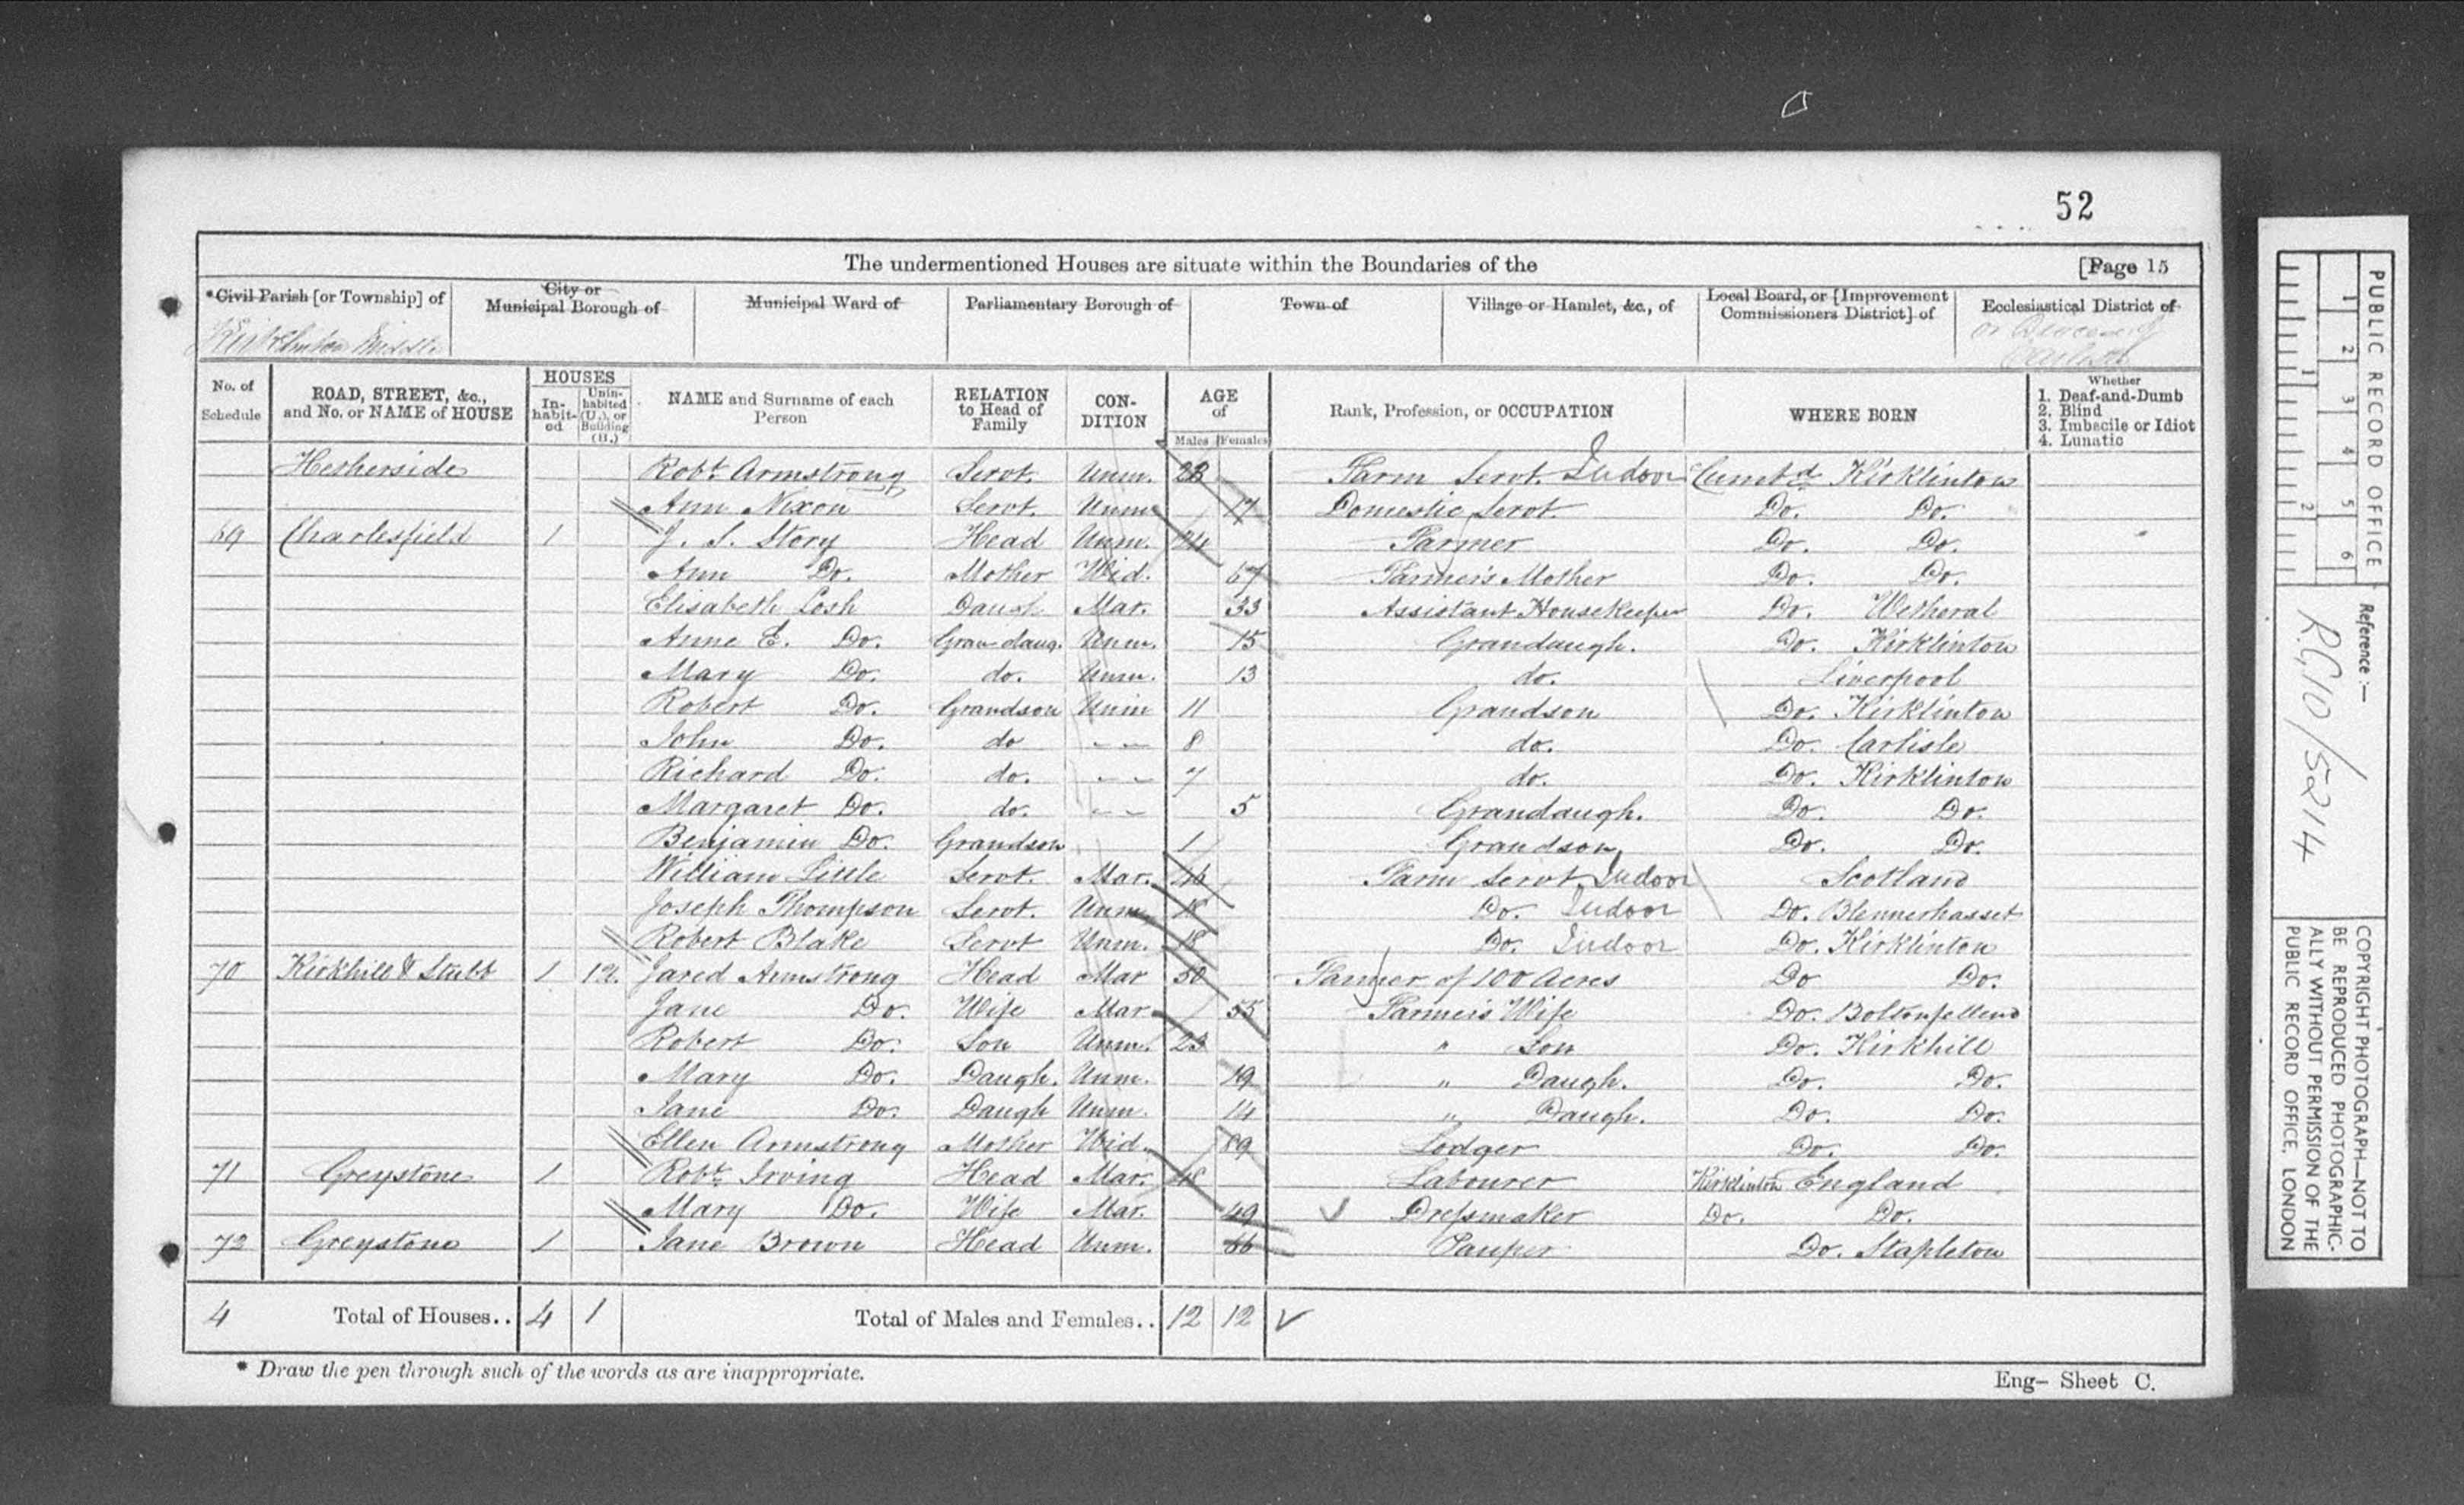 52
The undermentioned Houses are situate within the Boundaries of the [Page 15
*Civil Parish [or Township] of City or Municipal Borough of Municipal Ward of Parliamentary Borough of Town of Village or Hamlet, &c., of Local Board, or [Improvement Commissioners District] of Ecclesiastical District of
Kirklinton Middle
No. of Schedule ROAD, STREET, &c., and No. or NAME of HOUSE HOUSES Inhabited Uninhabited (U.), or Building (B.) NAME and Surname of each Person RELATION to Head of Family CONDITION AGE of Males Females Rank, Profession, or OCCUPATION WHERE BORN Whether 1. Deaf-and-Dumb 2. Blind 3. Imbecile or Idiot 4. Lunatic
Hetherside Robt. Armstrong Servt. Unm. 23 Farm Servt. Indoor Cumbd Kirklinton
Ann Nixon Servt. Unm. 17 Domestic Servt. Do. Do.
69 Charlesfield 1 J. S. Story Head Unm. 24 Farmer Do. Do.
Ann Do. Mother Wid. 67 Farmer's Mother Do. Do.
Elisabeth Losh Daugh Mar. 33 Assistant Housekeeper Do. Wetheral
Anne E. Do. Gran daug. Unm. 15 Grandaugh. Do. Kirklinton
Mary Do. do. Unm. 13 do. Liverpool
Robert Do. Grandson Unm 11 Grandson Do. Kirklinton
John Do. do - - 8 do. Do. Carlisle
Richard Do. do. - - 7 do. Do. Kirklinton
Margaret Do. do. - - 5 Grandaugh. Do. Do.
Benjamin Do. Grandson 1 Grandson Do. Do.
William Little Servt. Mar. 46 Farm Servt Indoor Scotland
Joseph Thompson Servt. Unm. 18 Do. Indoor Do. Blennerhasset
Robert Blake Servt Unm. 18 Do. Indoor Do. Kirklinton
70 Kirkhill & Stubb 1 Jared Armstrong Head Mar 50 Farmer of 100 Acres Do Do.
Jane Do. Wife Mar 55 Farmer's Wife Do. Boltonfellend
Robert Do. Son Unm. 23 " Son Do. Kirkhill
Mary Do. Daugh. Unm. 19 " Daugh. Do. Do.
Jane Do. Daugh Unm. 14 " Daugh. Do. Do.
Ellen Armstrong Mother Wid. 89 Lodger Do. Do.
71 Greystone 1 Robt. Irving Head Mar. 48 Labourer Kirklinton England
Mary Do. Wife Mar. 49 Dressmaker Do. Do.
72 Greystone 1 Jane Brown Head Unm. 66 Pauper Do. Stapleton
4 Total of Houses.. 4 1 Total of Males and Females.. 12 12
* Draw the pen through such of the words as are inappropriate.
Eng- Sheet C.
PUBLIC RECORD OFFICE
1 2 3 4 5 6
1 2
Reference :-
R.G. 10/5214
COPYRIGHT PHOTOGRAPH—NOT TO
BE REPRODUCED PHOTOGRAPHIC-
ALLY WITHOUT PERMISSION OF THE
PUBLIC RECORD OFFICE, LONDON